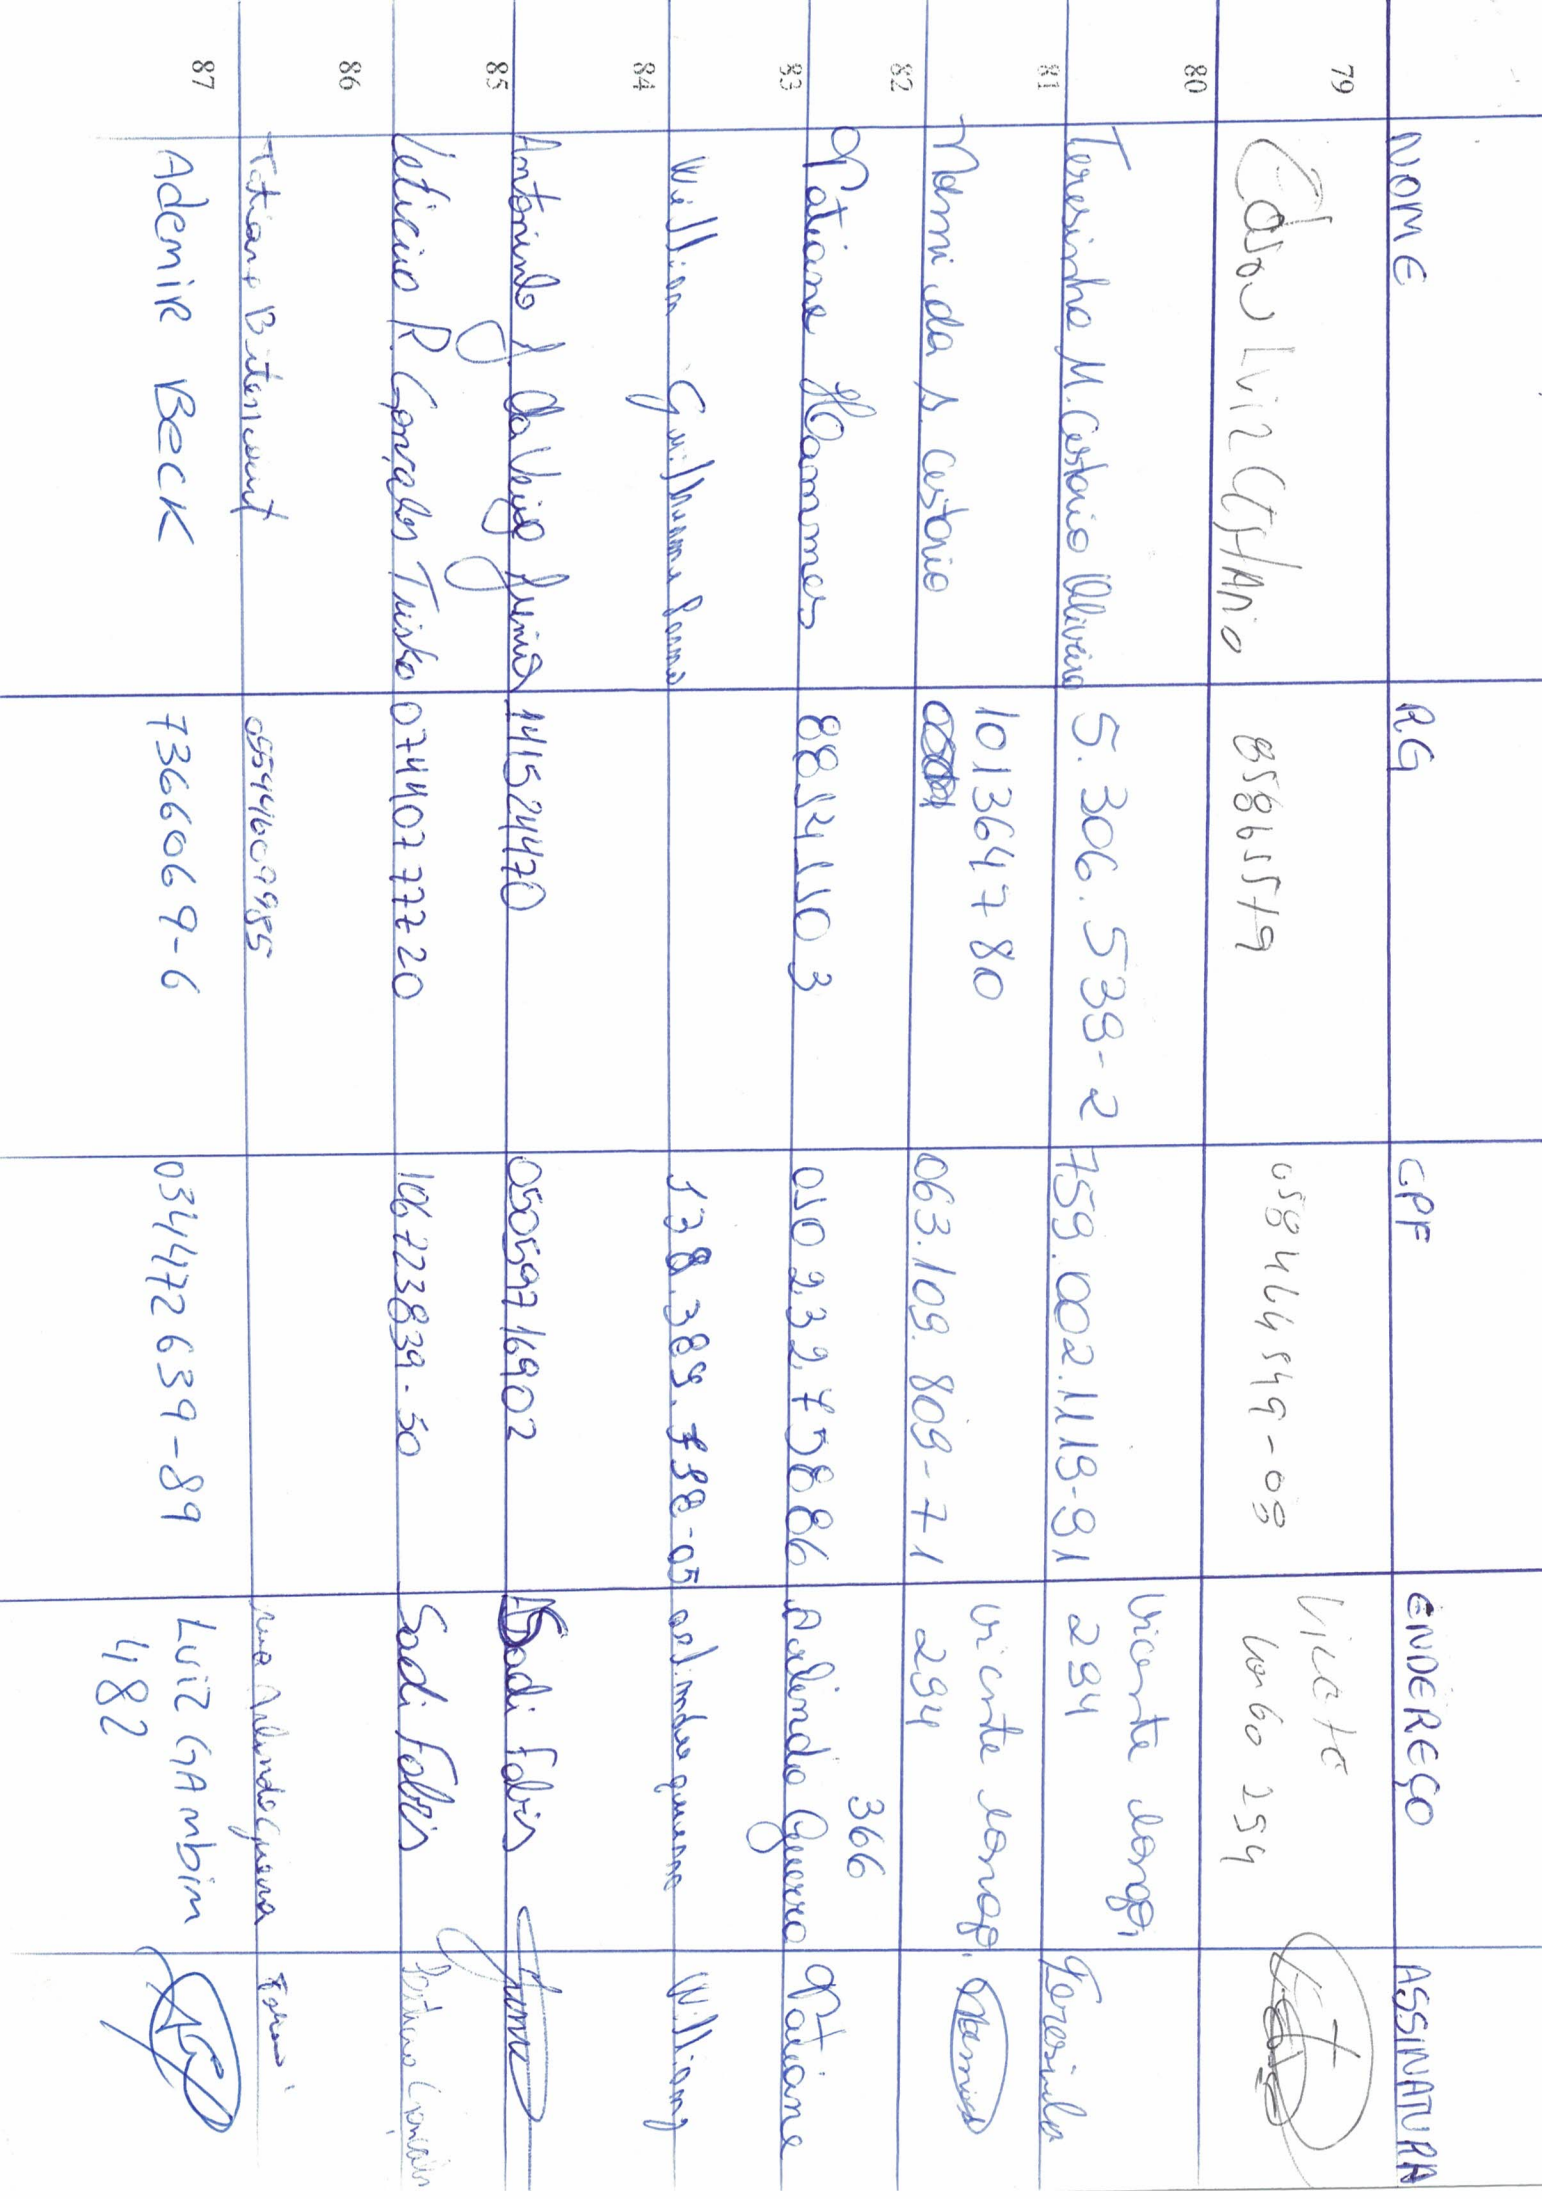 NOME RG CPF ENDEREÇO ASSINATURA
79 Edson Luiz 85865519 058464549-09
294
80 Teresinha M. Custonio Oliveira 5.306.539-2 759.002.1119-91 Vicente Longo,
294 Teresinha
81 Noemi da S. Custonio 101364780 063.109.809-71 Vicente Longo,
294 Noemi
82 Tatiane Hammes 88141103 01023275886 366
Arlindo Guerra Tatiane
83 Willian Guilherme 138.389.798-05 Willians
84 Antonindo J. da Veiga Junior 141524470 05059716902 Sadi Fabris
85 Leticia R. Gonçales Trisko 07440777720 106723839-30 Sadi Fabris Leticia Gonçales
86 Tatiane Bitencourt 05544609985 rua Arlindo Guerra
87 Ademir Beck 7366069-6 034472639-89 Luiz Gambim
482